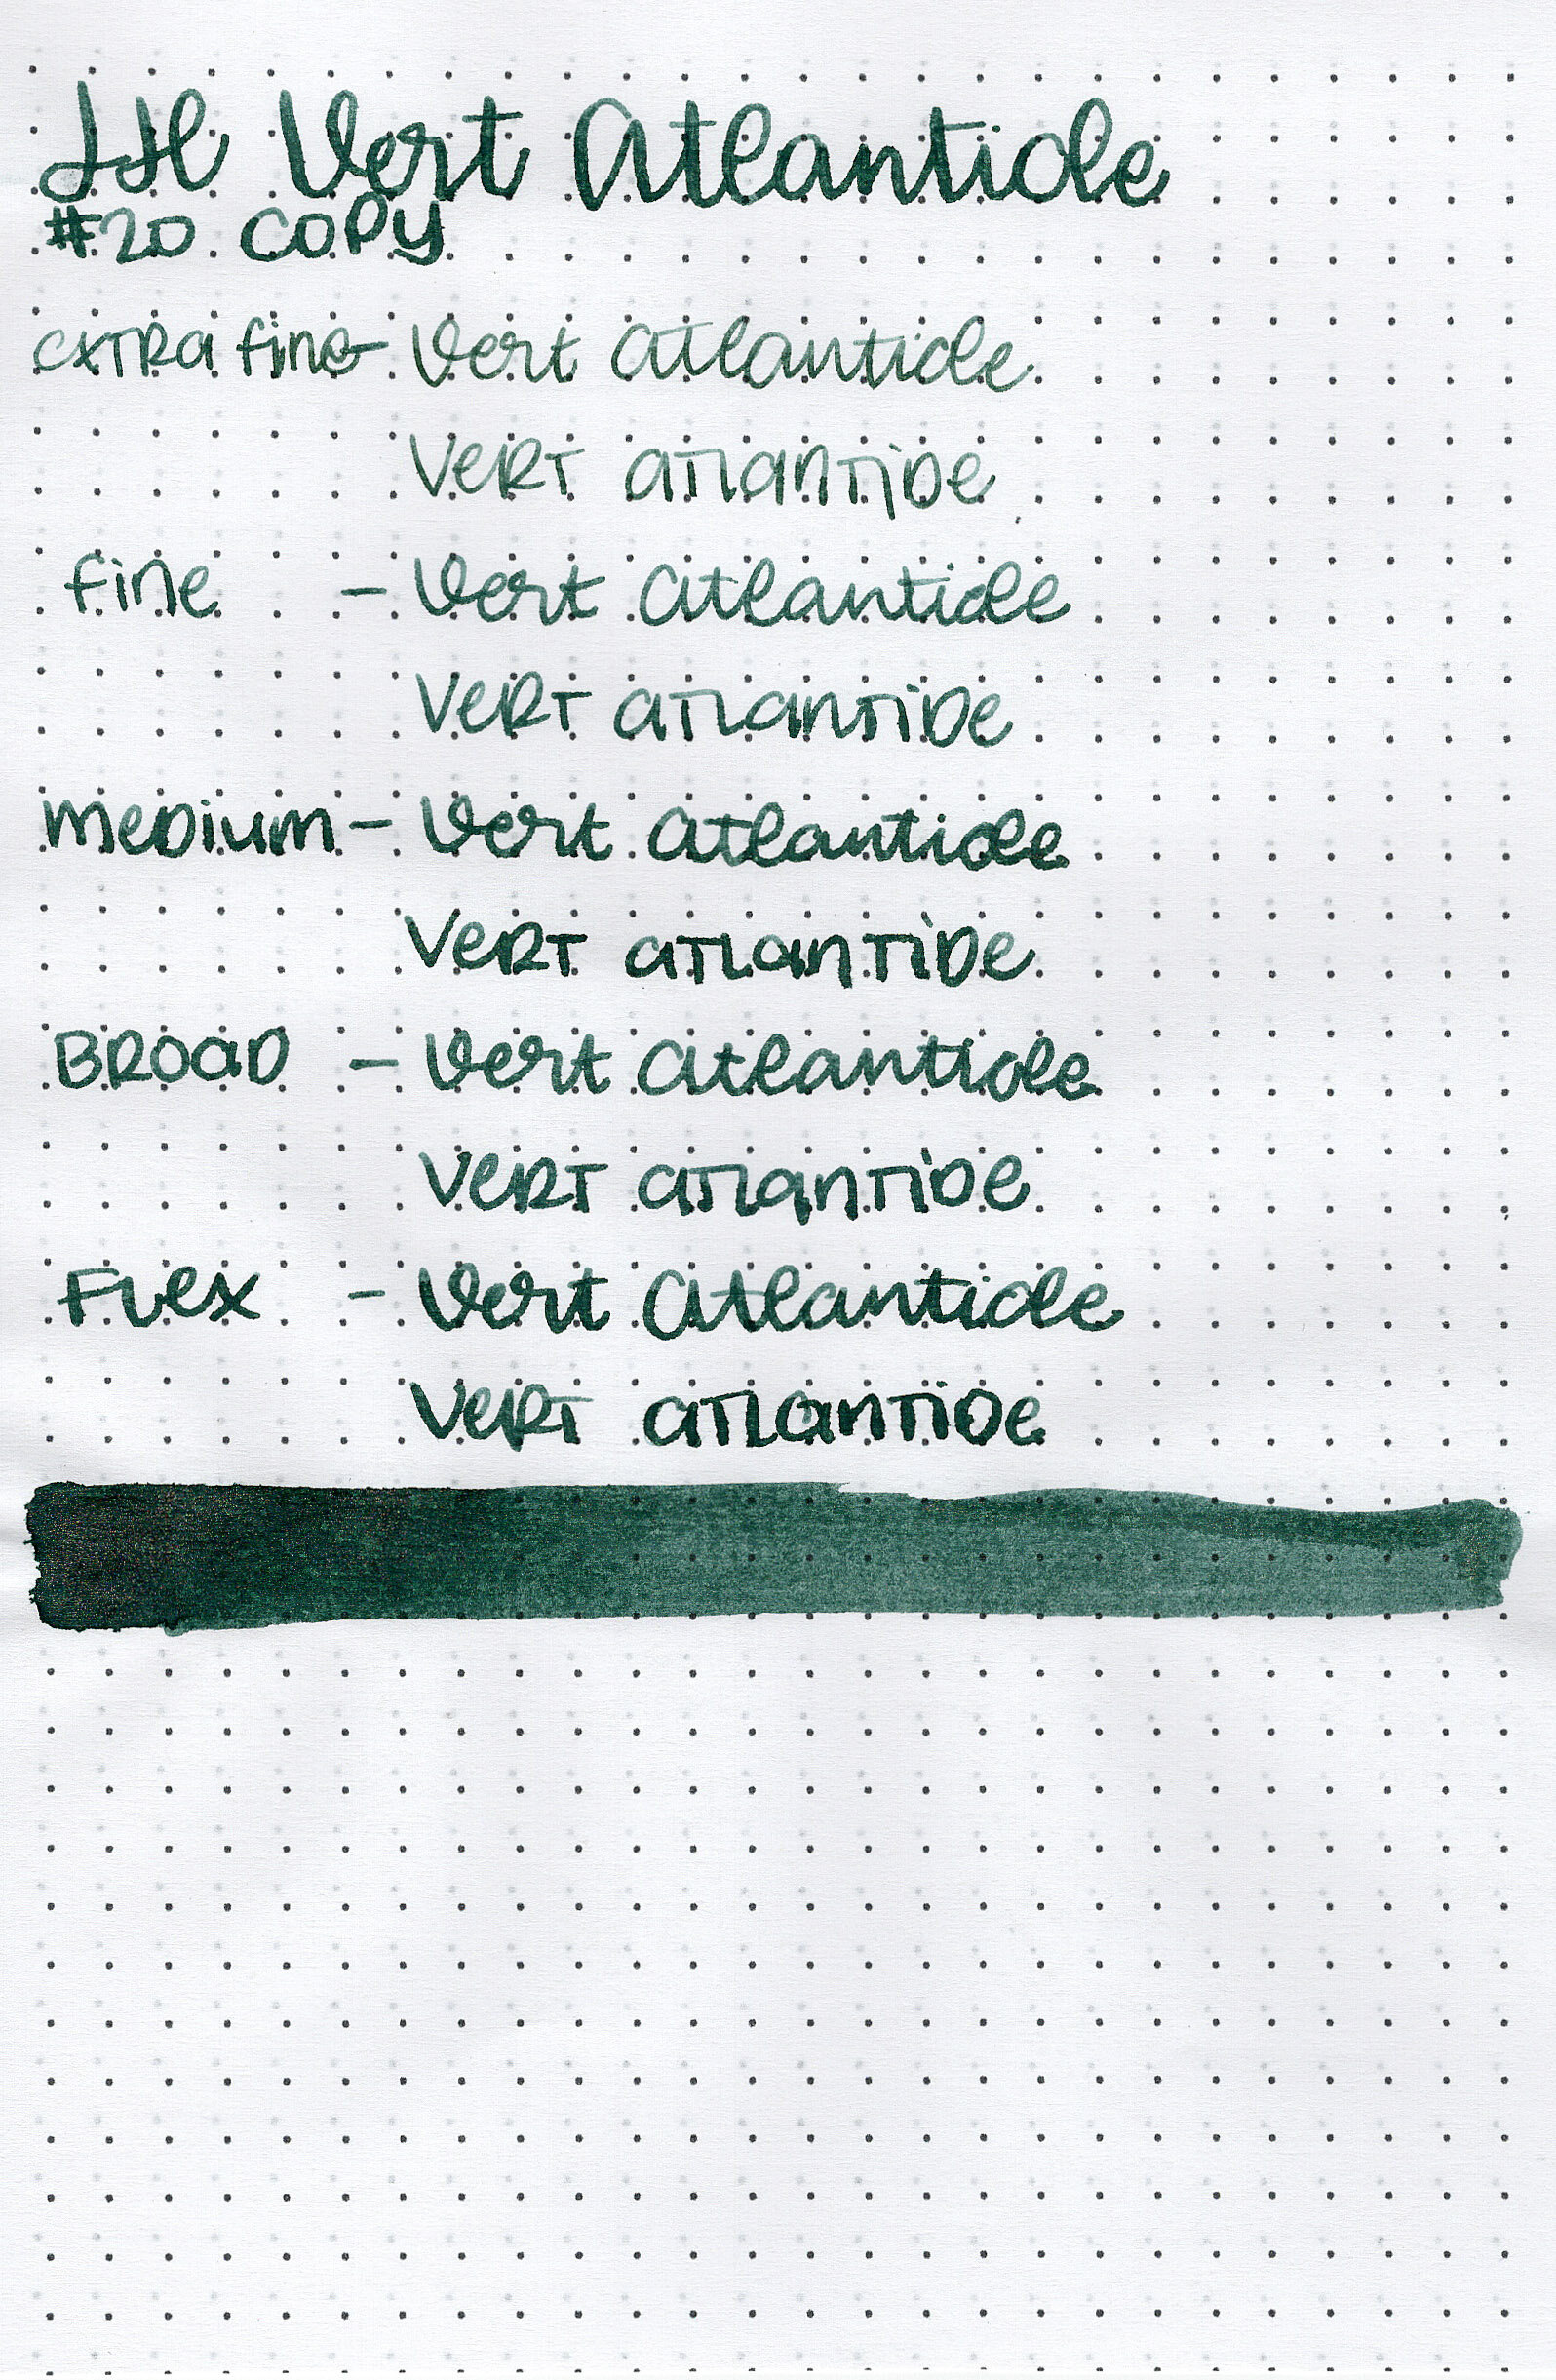 JH Vert Atlantide
#20 COPY
extra fine - Vert Atlantide
Vert Atlantide
fine - Vert Atlantide
Vert Atlantide
medium - Vert Atlantide
Vert Atlantide
Broad - Vert Atlantide
Vert Atlantide
Flex - Vert Atlantide
Vert Atlantide